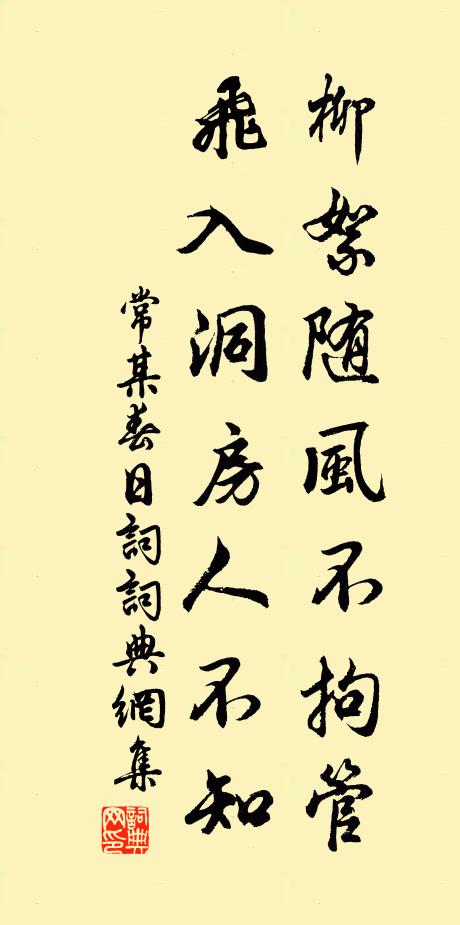 柳絮随風不拘管
飛入洞房人不知
常某春日詞詞典網集
詞典網印